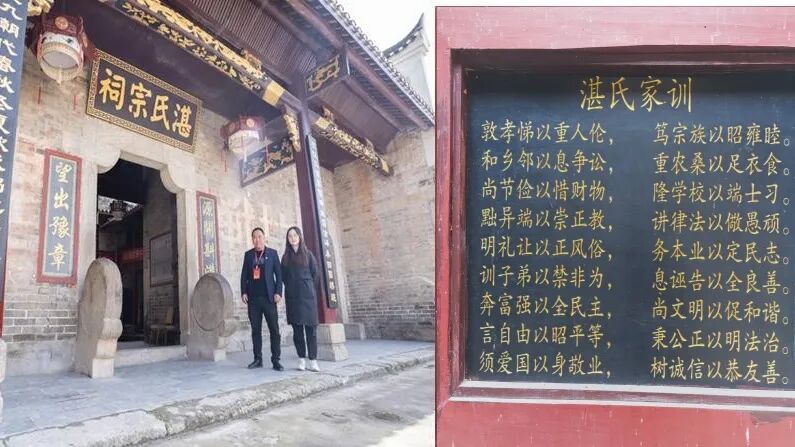 湛氏宗祠
望出豫章
湛氏家训
敦孝悌以重人伦，笃宗族以昭雍睦。
和乡邻以息争讼，重农桑以足衣食。
尚节俭以惜财物，隆学校以端士习。
黜异端以崇正教，讲律法以儆愚顽。
明礼让以正风俗，务本业以定民志。
训子弟以禁非为，息诬告以全良善。
奔富强以全民主，尚文明以促和谐。
言自由以昭平等，秉公正以明法治。
须爱国以身敬业，树诚信以恭友善。